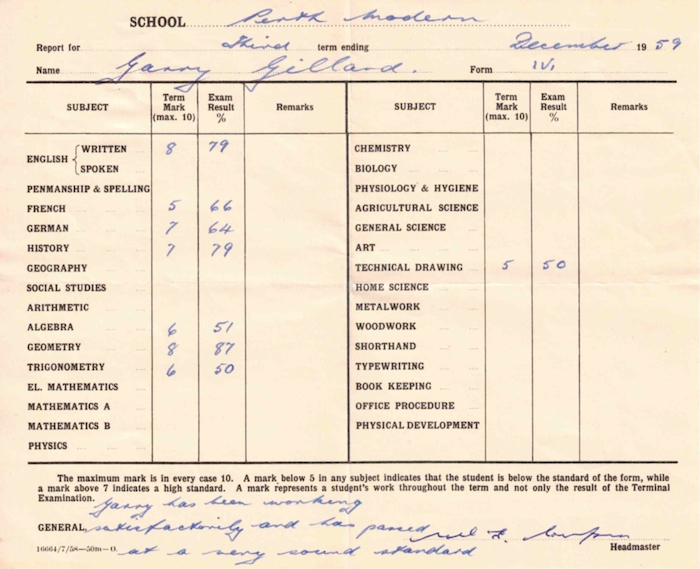 SCHOOL Perth Modern
Report for Third term ending December 1959
Name Garry Gillard. Form IV.
SUBJECT Term Mark (max. 10) Exam Result % Remarks SUBJECT Term Mark (max. 10) Exam Result % Remarks
ENGLISH { WRITTEN 8 79 CHEMISTRY
SPOKEN BIOLOGY
PENMANSHIP & SPELLING PHYSIOLOGY & HYGIENE
FRENCH 5 66 AGRICULTURAL SCIENCE
GERMAN 7 64 GENERAL SCIENCE
HISTORY 7 79 ART
GEOGRAPHY TECHNICAL DRAWING 5 50
SOCIAL STUDIES HOME SCIENCE
ARITHMETIC METALWORK
ALGEBRA 6 51 WOODWORK
GEOMETRY 8 87 SHORTHAND
TRIGONOMETRY 6 50 TYPEWRITING
EL. MATHEMATICS BOOK KEEPING
MATHEMATICS A OFFICE PROCEDURE
MATHEMATICS B PHYSICAL DEVELOPMENT
PHYSICS
The maximum mark is in every case 10. A mark below 5 in any subject indicates that the student is below the standard of the form, while
a mark above 7 indicates a high standard. A mark represents a student's work throughout the term and not only the result of the Terminal
Examination.
Garry has been working
GENERAL, satisfactorily and has passed
at a very sound standard
16664/7/58—50m—O. Headmaster